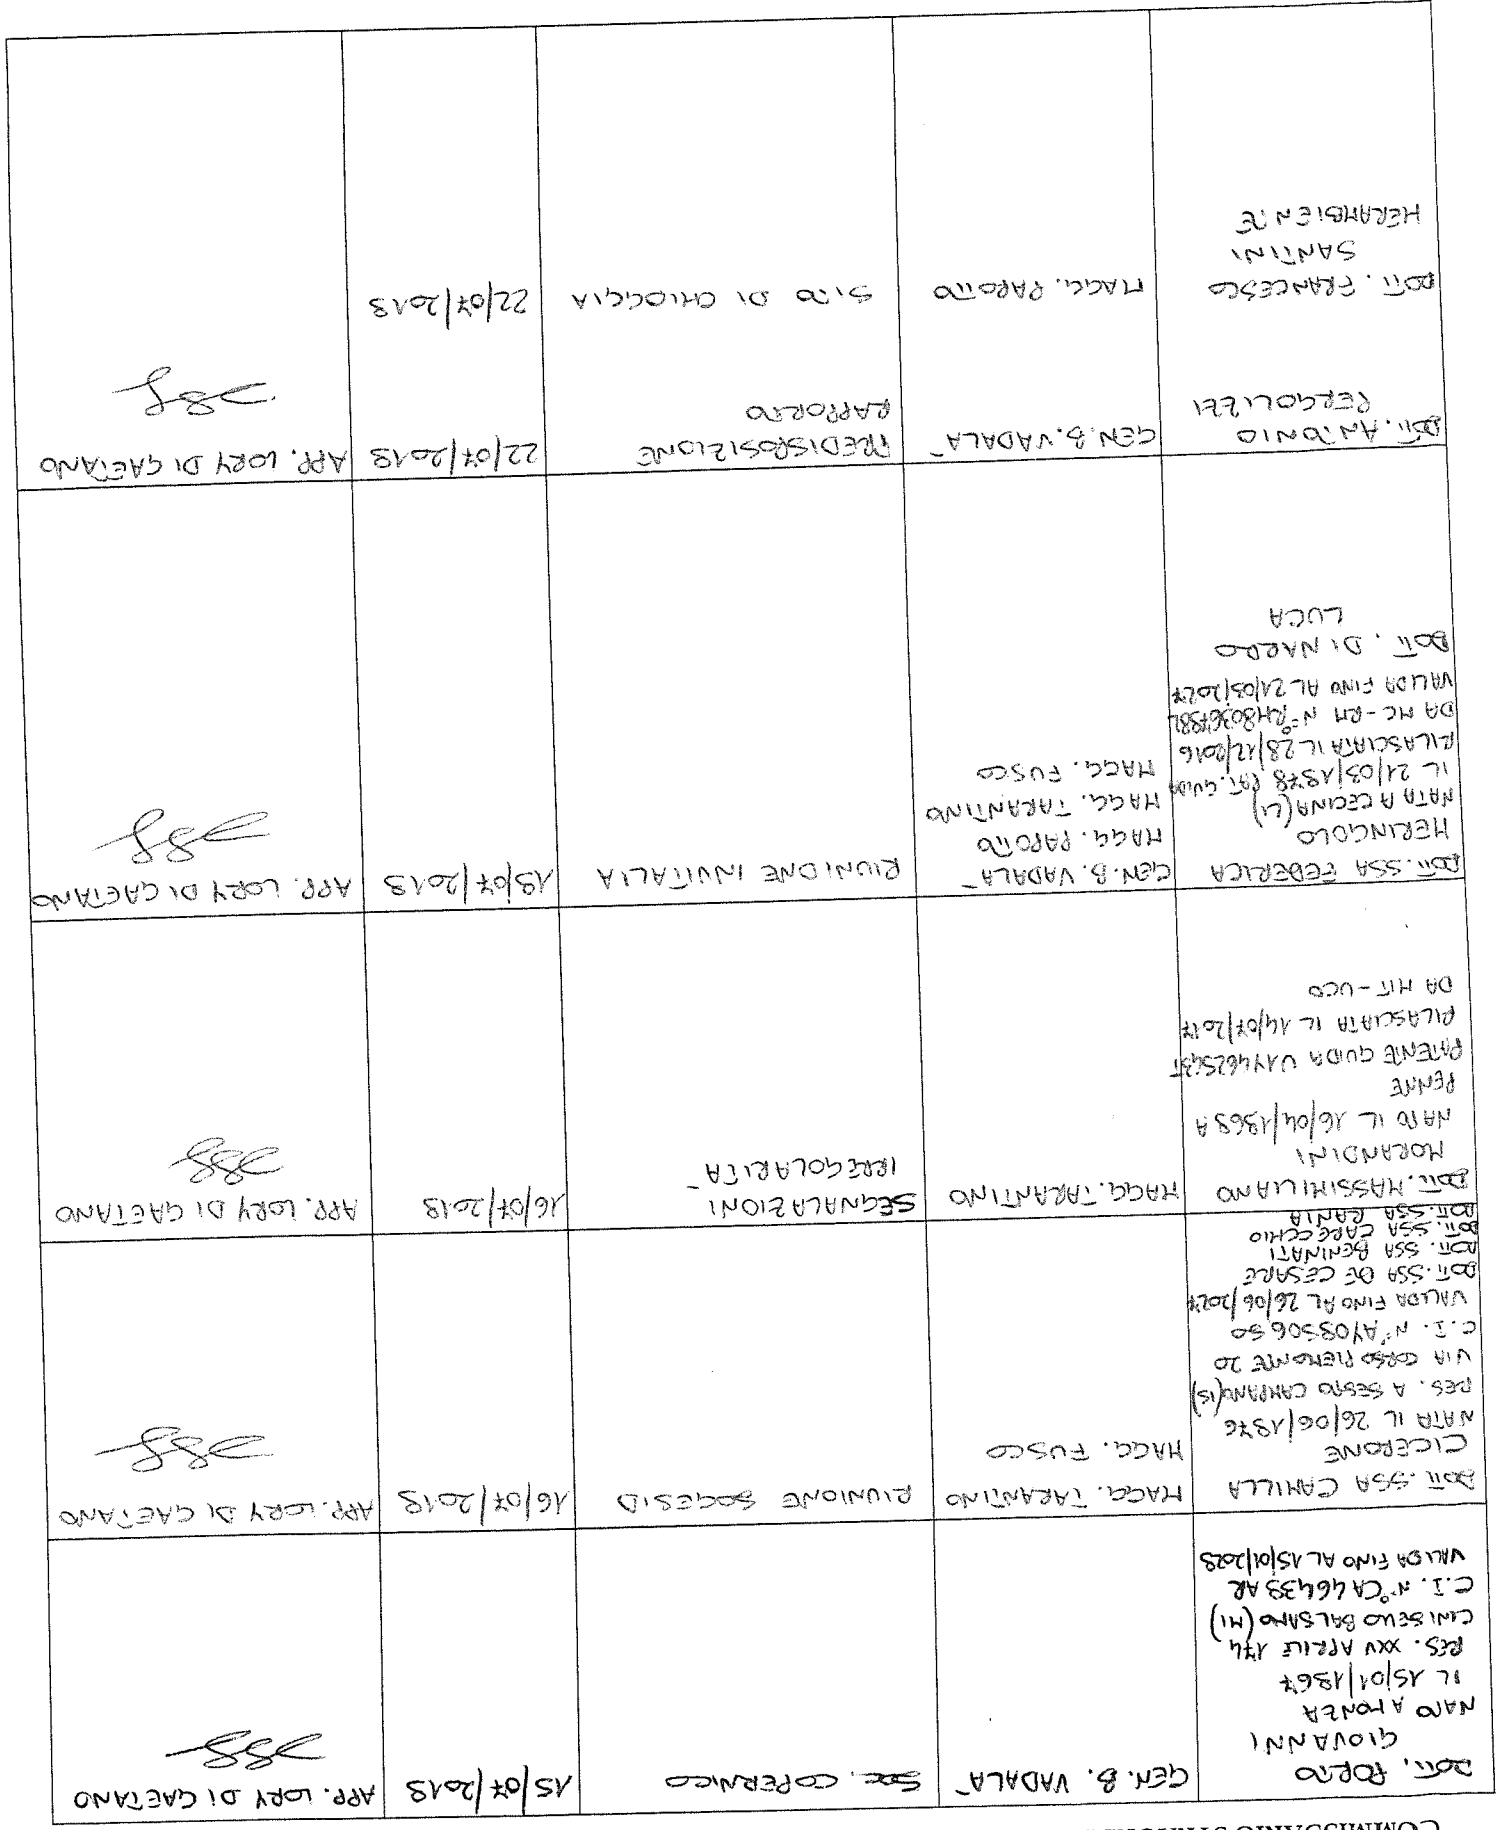 COMMISSARIO
DOTT. PORTO
GIOVANNI
NATO A MONZA
IL 15/01/1967
RES. XXV APRILE 174
CINISELLO BALSAMO (MI)
C.I. N° CA46439AR
VALIDA FINO AL 15/01/2029
GEN. B. VADALA'
SOC. COPERNICO
15/07/2019
APP. LORY DI GAETANO
DOTT.SSA CAMILLA
CICERONE
NATA IL 26/06/1976
RES. A SESTO CAMPANO (IS)
VIA CORSO PIEMONTE 20
C.I. N°
VALIDA FINO AL 26/06/2027
DOTT.SSA DE CESARE
DOTT.SSA BENINATI
DOTT.SSA CARECCHIO
DOTT.SSA RANIA
MAGG. TARANTINO
MAGG. FUSCO
RIUNIONE SOGESID
16/07/2019
APP. LORY DI GAETANO
DOTT. MASSIMILIANO
MORANDINI
NATO IL 16/04/1969 A
PENNE
PATENTE GUIDA U1Y462543T
RILASCIATA IL 14/07/2017
DA MIT-UCO
MAGG. TARANTINO
SEGNALAZIONI
IRREGOLARITA'
16/07/2019
APP. LORY DI GAETANO
DOTT.SSA FEDERICA
MERINGOLO
NATA A CECINA (LI)
IL 21/03/1978 PAT. GUIDA
RILASCIATA IL 28/12/2016
DA MC-RM N°
VALIDA FINO AL 21/03/2027
DOTT. DI NARDO
LUCA
GEN. B. VADALA'
MAGG. PAPOTTO
MAGG. TARANTINO
MAGG. FUSCO
RIUNIONE INVITALIA
19/07/2019
APP. LORY DI GAETANO
DOTT. ANTONIO
PERGOLIZZI
GEN. B. VADALA'
PREDISPOSIZIONE
RAPPORTO
22/07/2019
APP. LORY DI GAETANO
DOTT. FRANCESCO
SANTINI
HERAMBIENTE
MAGG. PAPOTTO
SITO DI CHIOGGIA
22/07/2019